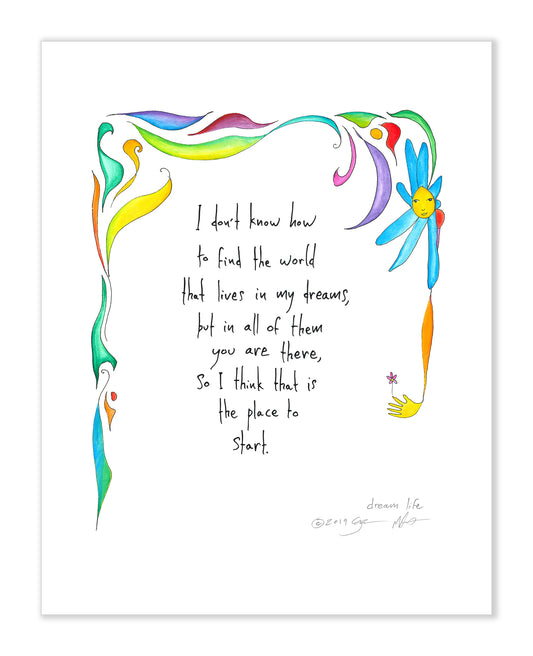 I don't know how
to find the world
that lives in my dreams,
but in all of them
you are there,
so I think that is
the place to
start.
dream life
©2019